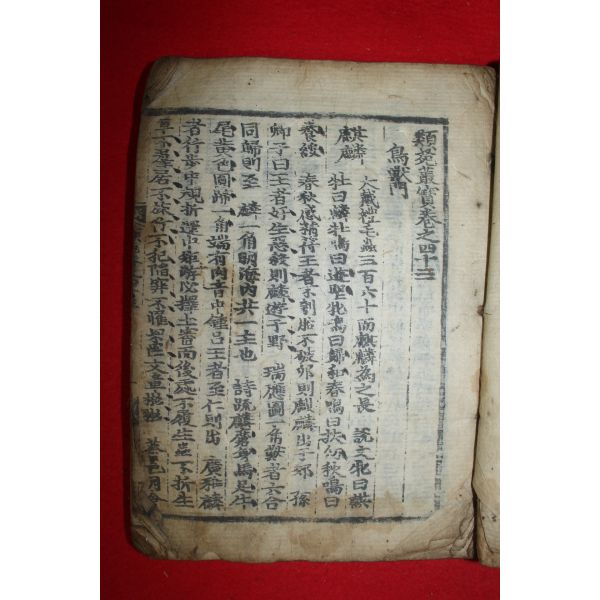 類苑叢寶卷之四十三
鳥獸門
麒麟 大戴禮毛蟲三百六十而麒麟為之長 說文牝曰麒
牡曰麟牡鳴曰遊聖牝鳴曰歸和春鳴曰扶幼秋鳴曰
養綏 春秋感精符王者不刳胎不破卵則麒麟出于郊 孫
卿子曰王者好生惡殺則麟遊于野 瑞應圖一角獸者六合
同歸則至 麟一角明海內共一主也 詩疏麟麕身馬足牛
尾黃色圓蹄一角端有肉音中鍾呂王者至仁則出 廣雅麟
者行步中規折還中矩遊必擇土翔而後處不履生蟲不折生
草不羣居不旅行不犯陷穽不罹罘罔文章斌斌